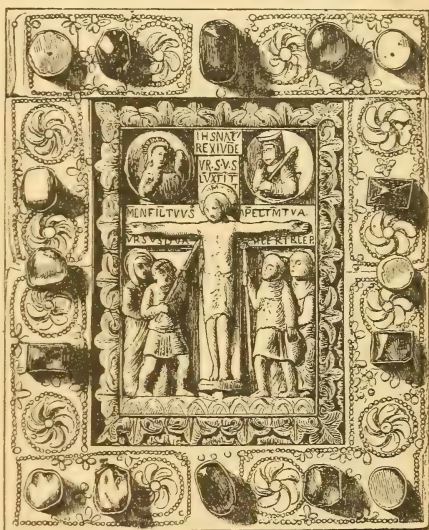 IHS NAZ
REX IVDE
VRSVS
IVSTIT
MEN FILTVVS
APELTMTVA
VRSVS DVX